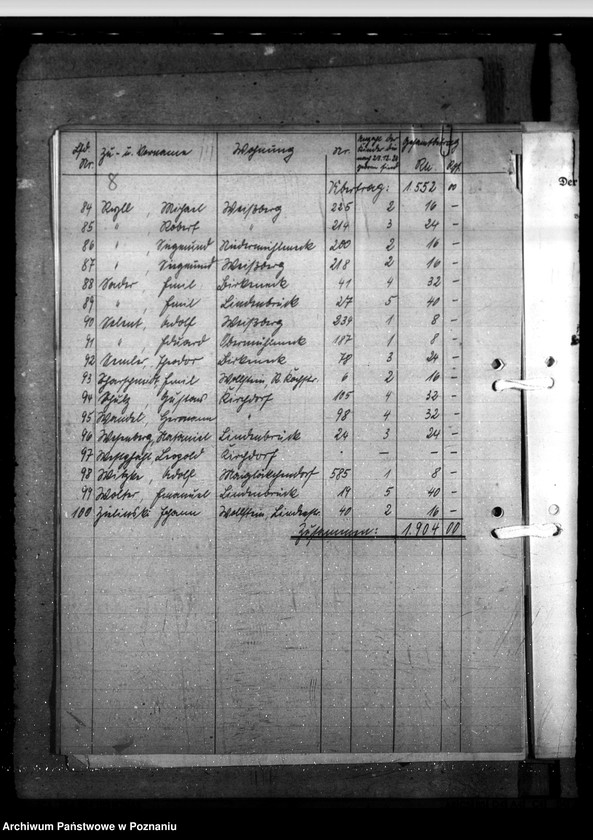 Lfd. Nr. Zu- u. Vorname Wohnung Nr. Anzahl der Kinder die nach geboren sind Gesamtbetrag RM. Rpf.
8
Der
Übertrag: 1552 00
84 Michael Weißberg 225 2 16 —
85 " , Robert " 214 3 24 —
86 " , Siegmund Niedermühleneck 200 2 16 —
87 " , Siegmund Weißberg 218 2 16 —
88 , Emil Birkeneck 41 4 32 —
89 " , Emil Lindenbrück 27 5 40 —
90 , Adolf Weißberg 234 1 8 —
91 " , Eduard Obermühleneck 187 1 8 —
92 Semler, Theodor Birkeneck 70 3 24 —
93 Emil Wollstein, 6 2 16 —
94 Schulz , Gustav Kirchdorf 105 4 32 —
95 Wandel, Hermann " 98 4 32 —
96 Nataniel Lindenbrück 24 3 24 —
97 Leopold Kirchdorf . — — —
98 Witzke , Adolf Maiglöckchendorf 585 1 8 —
99 Wolter, Emanuel Lindenbrück 19 5 40 —
100 Zielinski Johann Wollstein, Lindenstr. 40 2 16 —
Zusammen: 1.904 00
Archiwum Państwowe w Poznaniu